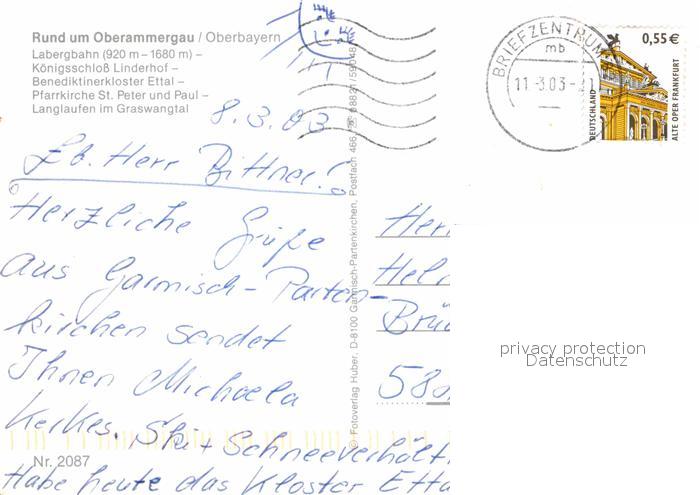 Rund um Oberammergau / Oberbayern
Labergbahn (920 m – 1680 m) –
Königsschloß Linderhof –
Benediktinerkloster Ettal –
Pfarrkirche St. Peter und Paul –
Langlaufen im Graswangtal
8.3.03
Lb. Herr Bittner!
Herzliche Grüße
aus Garmisch-Parten-
kirchen sendet
Ihnen Michaela
Kerkes. Ski + Schneeverhält
Habe heute das Kloster Etta
Nr. 2087
© Fotoverlag Huber, D-8100 Garmisch-Partenkirchen, Postfach 466,
BRIEFZENTRUM
mb
11.-3.03
0,55 €
DEUTSCHLAND
ALTE OPER FRANKFURT
Herr
Hel
Brü
58
privacy protection
Datenschutz